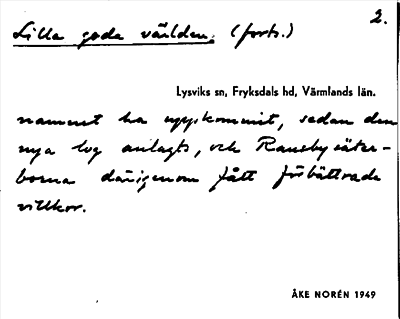 2.
Lilla goda världen. (forts.)
Lysviks sn, Fryksdals hd, Värmlands län.
namnet ha uppkommit, sedan den
nya väg anlagts, och Ransbysäter-
borna därigenom fått förbättrade
villkor.
ÅKE NORÉN 1949